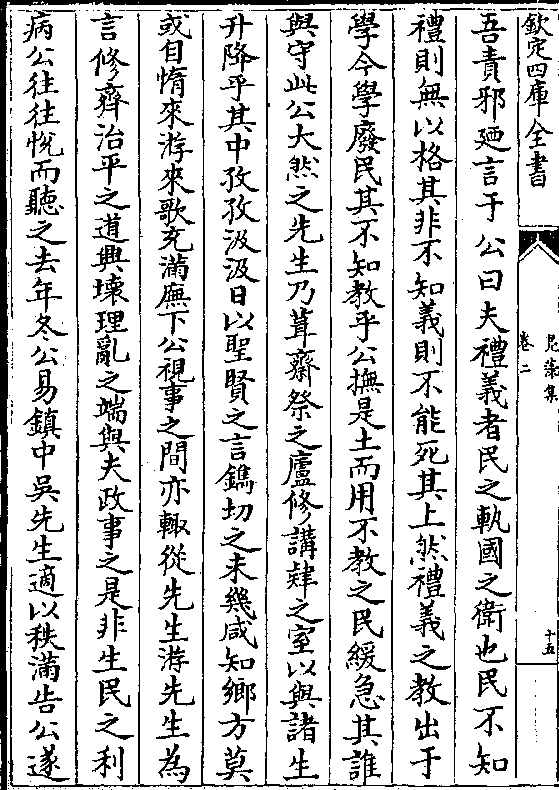 欽定四庫全書
鳧藻集
卷二
十五
吾責邪廼言于 公曰夫禮義者民之軌國之衛也民不知
禮則無以格其非不知義則不能死其上然禮義之教出于
學今學廢民其不知教乎公撫是土而用不教之民緩急其誰
與守此公大然之先生乃葺齋祭之廬修講肄之室以與諸生
升降乎其中孜孜汲汲日以聖賢之言鐫切之未幾咸知鄉方莫
或自惰來游來歌充滿廡下公視事之間亦輙從先生游先生為
言修齊治平之道興壞理亂之端與夫政事之是非生民之利
病公往往悅而聽之去年冬公易鎮中吳先生適以秩滿告公遂